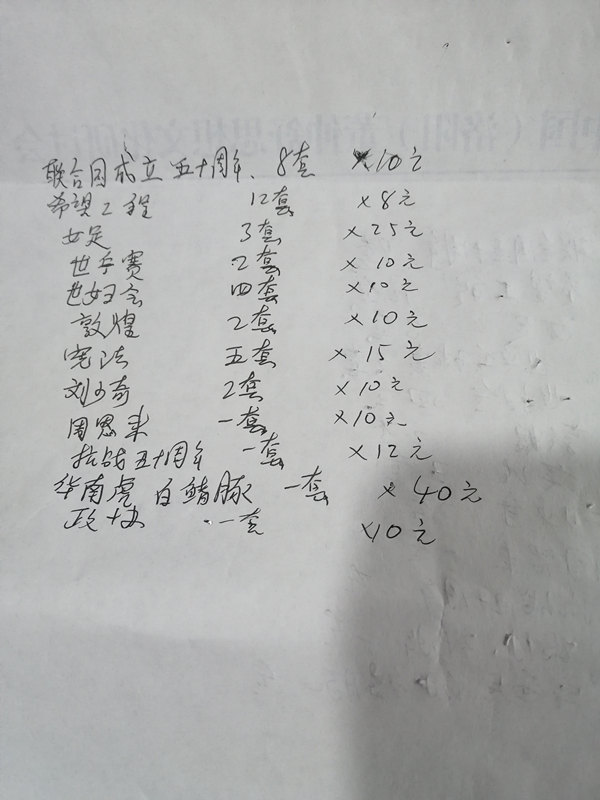 联合国成立五十周年、8套 ×10元
希望工程 12套 ×8元
女足 3套 ×25元
世乒赛 2套 ×10元
世妇会 四套 ×10元
敦煌 2套 ×10元
宪法 五套 ×15元
刘少奇 2套 ×10元
周恩来 一套 ×10元
抗战五十周年 一套 ×12元
华南虎 白鳍豚 一套 ×40元
政协 一套 ×10元